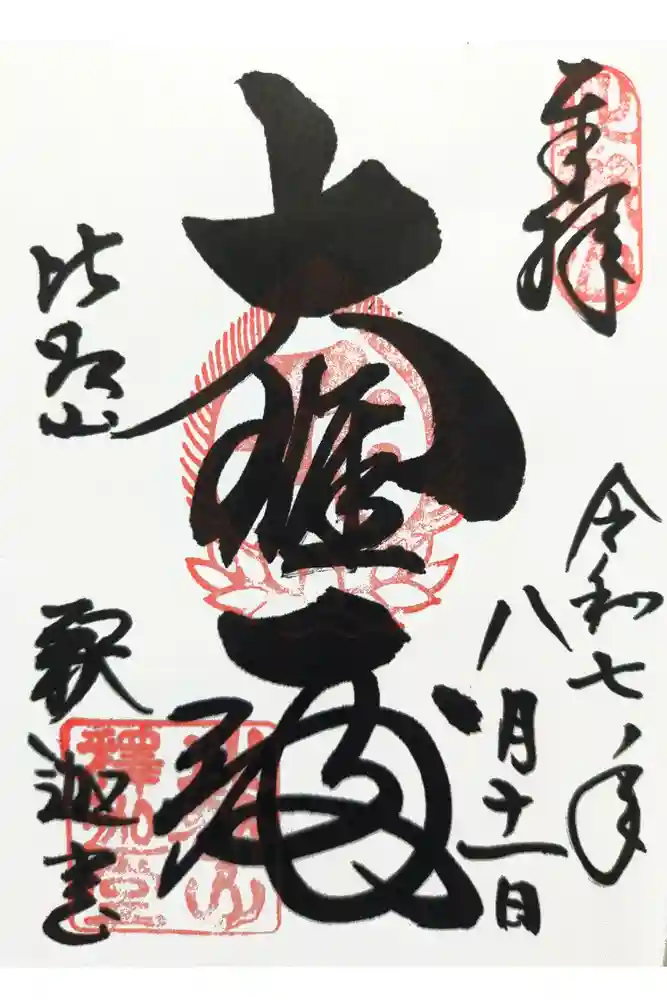 奉拝
令和七年
八月十一日
大雄殿
比叡山
釈迦堂
比叡山
釋迦堂